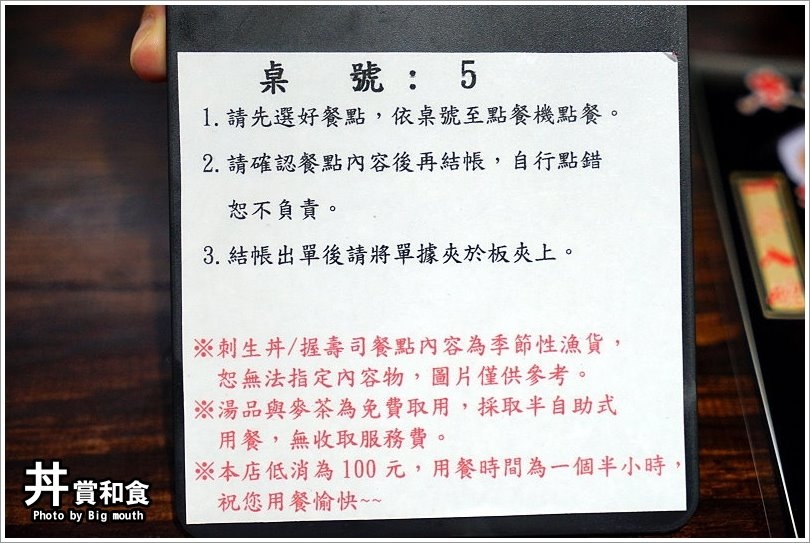 桌 號: 5
1.請先選好餐點，依桌號至點餐機點餐。
2.請確認餐點內容後再結帳，自行點錯
恕不負責。
3.結帳出單後請將單據夾於板夾上。
※刺生丼/握壽司餐點內容為季節性漁貨，
恕無法指定內容物，圖片僅供參考。
※湯品與麥茶為免費取用，採取半自助式
用餐，無收取服務費。
※本店低消為100元，用餐時間為一個半小時，
祝您用餐愉快~~
丼賞和食
Photo by Big mouth